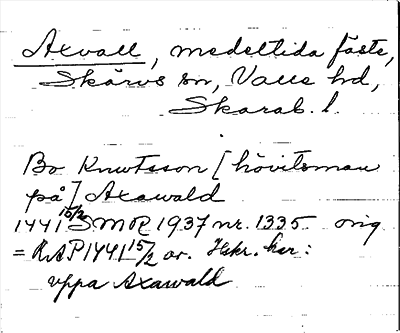 Axvall, medeltida fäste,
Skärvs sn, Valle hd,
Skarab. l.
Bo Knutsson [hövitsman
på] Axawald
1441 15/2 SMR 1937 nr. 1335 orig
= RAP 1441 15/2 or. Hskr. har:
uppa Axawald